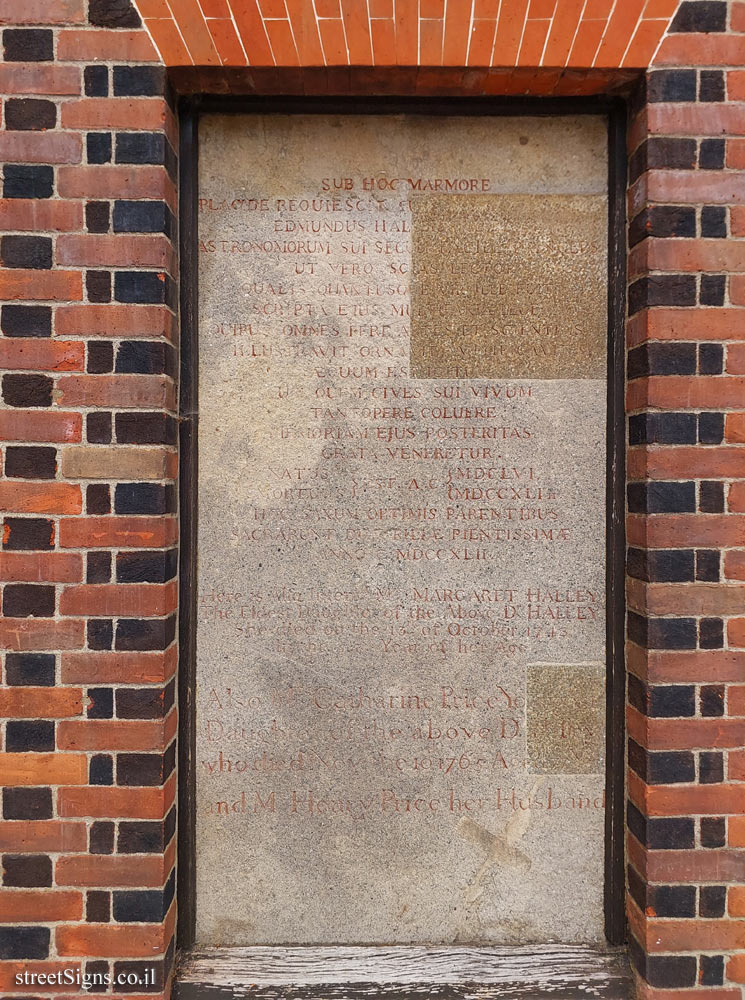 SUB HOC MARMORE
PLACIDE REQUIESCIT
EDMUNDUS
ASTRONOMORUM SUI
UT VERO SCIAS LECTOR
QUALIS QUANTUSQUE VIR ILLE FUIT
SCRIPTA EJUS
QUIBUS OMNES FERE ARTES ET SCIENTIAS
ILLUSTRAVIT
UT QUEM CIVES SUI VIVUM
TANTOPERE COLUERE
MEMORIAM EJUS POSTERITAS
GRATA VENERETUR
NATUS EST A.C. MDCLVI
MDCCXLI
HOC SAXUM OPTIMIS PARENTIBUS
SACRARUNT DUÆ FILIÆ PIENTISSIMÆ
ANNO MDCCXLII
MARGARET HALLEY
The Eldest Daughter of the Above Dr HALLEY
on the 13th of October 1743
Year of her Age
Also Mrs Catharine Price
Daughter of the above
who died Novr the 10 1765
and Mr Henry Price her Husband
streetSigns.co.il